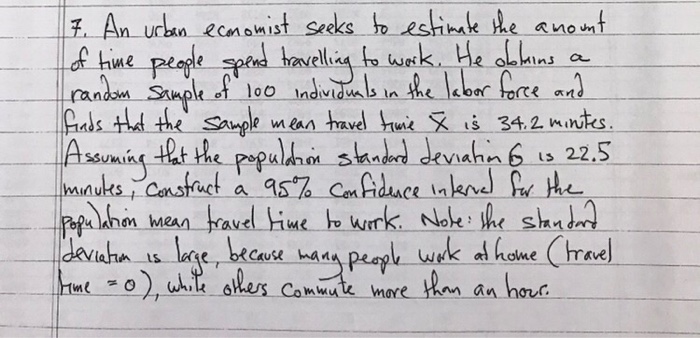 7. An urban economist seeks to estimate the amount
of time people spend travelling to work. He obtains a
random sample of 100 individuals in the labor force and
finds that the sample mean travel time x̄ is 34.2 minutes.
Assuming that the population standard deviation σ is 22.5
minutes, construct a 95% confidence interval for the
population mean travel time to work. Note: the standard
deviation is large, because many people work at home (travel
time = 0), while others commute more than an hour.